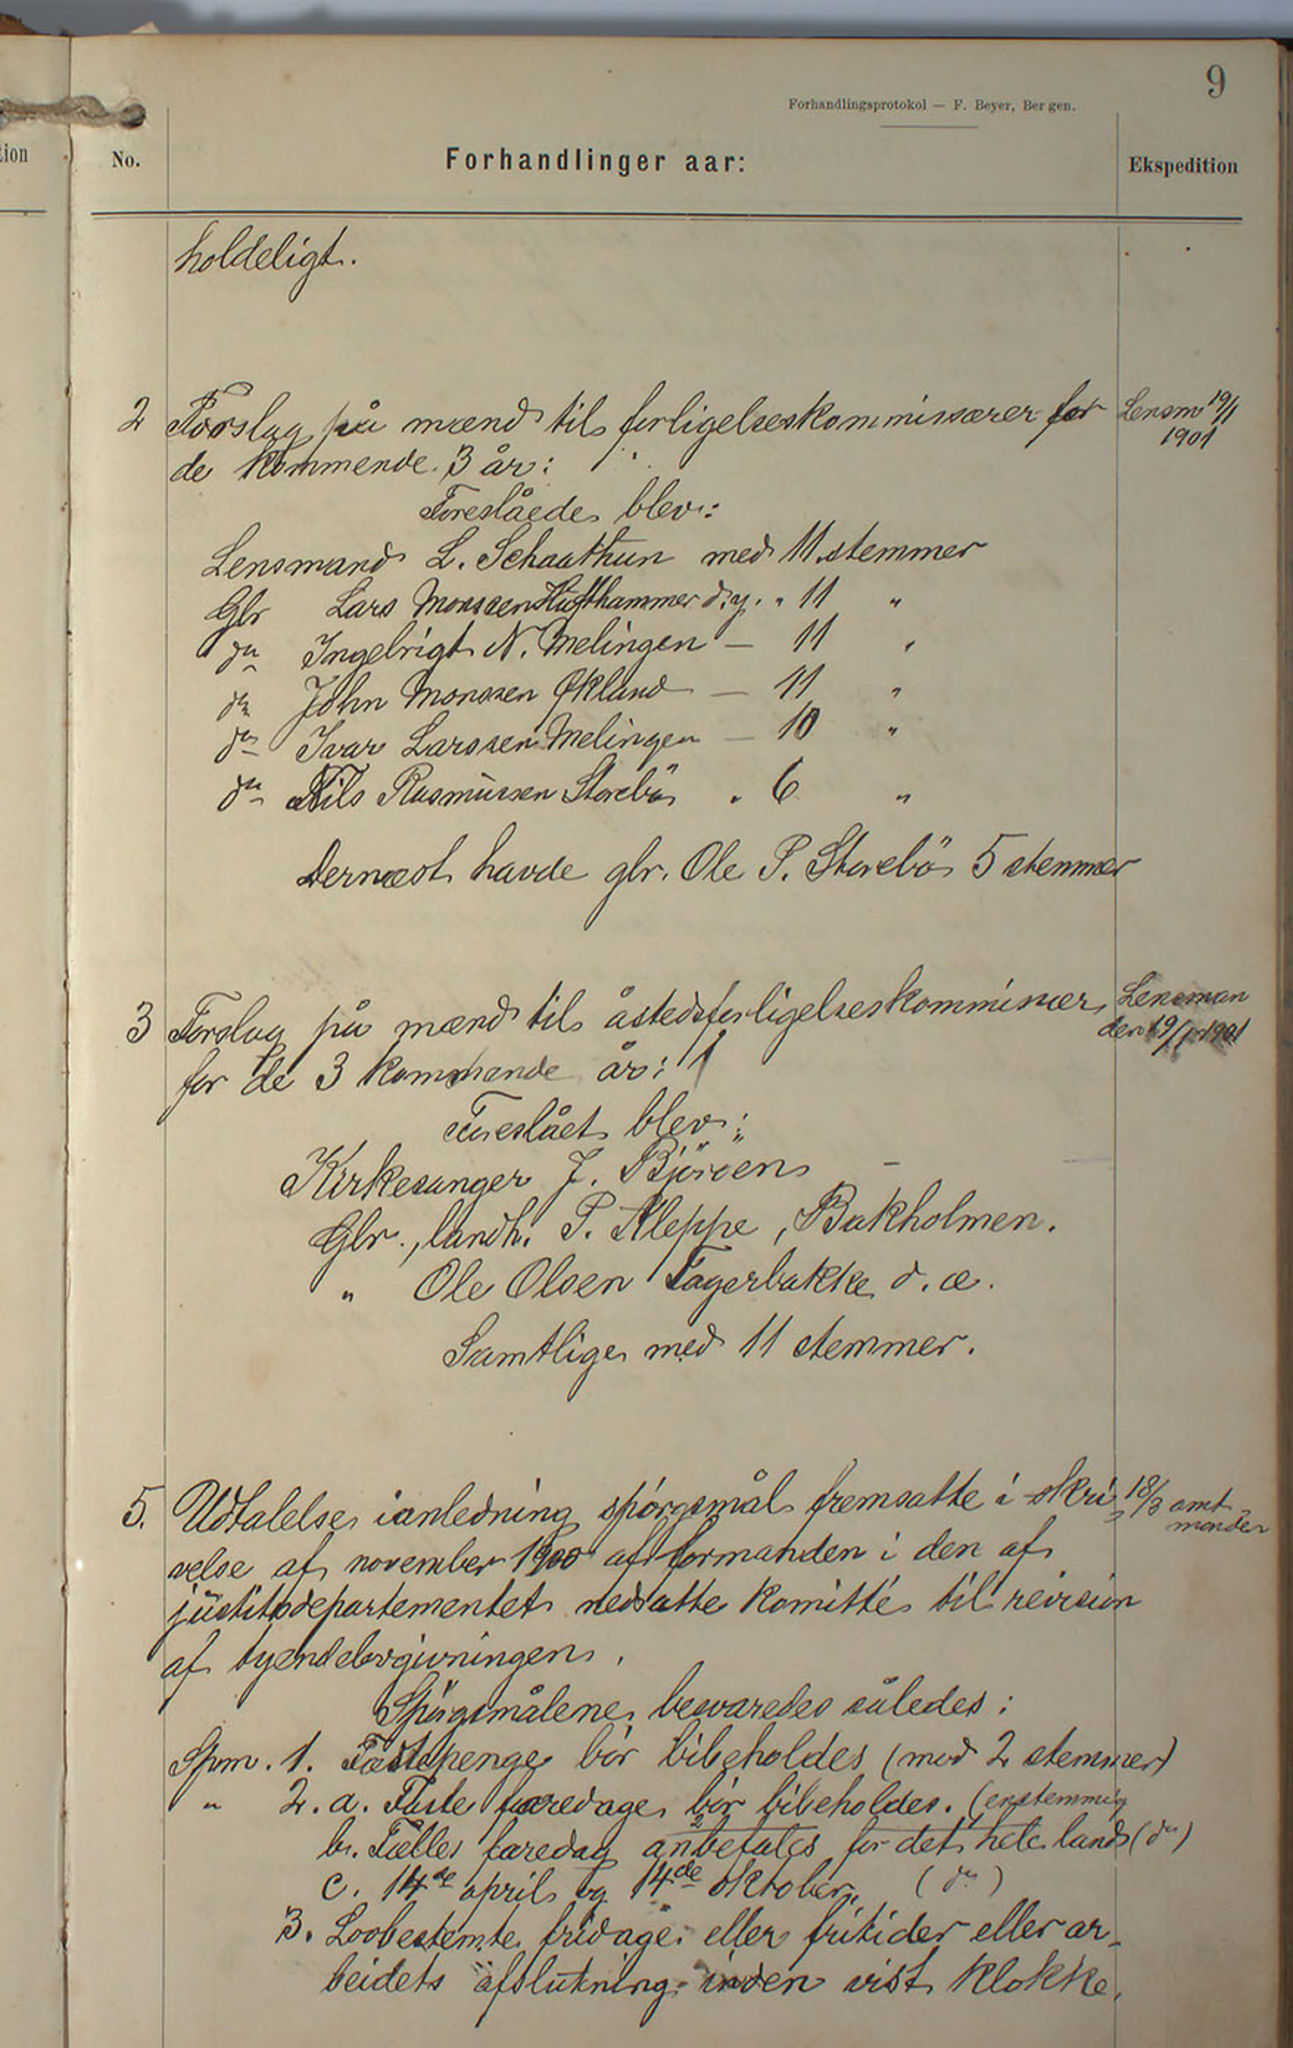 9
Forhandlingsprotokol — F. Beyer, Bergen.
tion
No.
Forhandlinger aar:
Ekspedition
holdeligt.
2 Forslag på mænd til forligelseskommissærer for
Lensm 19/1
1901
de kommende 3 år:
Foreslåede blev:
Lensmand L. Schaathun med 11 stemmer
Gbr Lars Monssen Hufthammer d.y. " 11 "
do Ingebrigt N. Melingen — 11 "
do John Monssen Økland — 11 "
do Ivar Larssen Melingen — 10 "
do Nils Rasmussen Storebö " 6 "
Dernæst havde gbr. Ole P. Storebö 5 stemmer
3 Forslag på mænd til åstedsforligelseskommissær
Lensman
den 19/1 1901
for de 3 kommende år:
Foreslået blev:
Kirkesanger J. Björöen
Gbr., landh. P. Kleppe, Bakholmen.
" Ole Olsen Fagerbakke d. æ.
Samtlige med 11 stemmer.
5. Udtalelse ianledning spörgsmål fremsatte i skri-
18/3 amt-
manden
velse af november 1900 af formanden i den af
justitsdepartementet nedsatte komitté til revision
af tyendelovgivningen.
Spörgsmålene besvaredes således:
Spm. 1. Fæstepenge bör bibeholdes (mod 2 stemmer)
" 2. a. Faste faredage bör bibeholdes. (enstemmig
b. Fælles faredag anbefales for det hele land (do)
2
c. 14de april og 14de oktober. (do)
3. Lovbestemte fridage eller fritider eller ar-
beidets afslutning inden vist klokke.